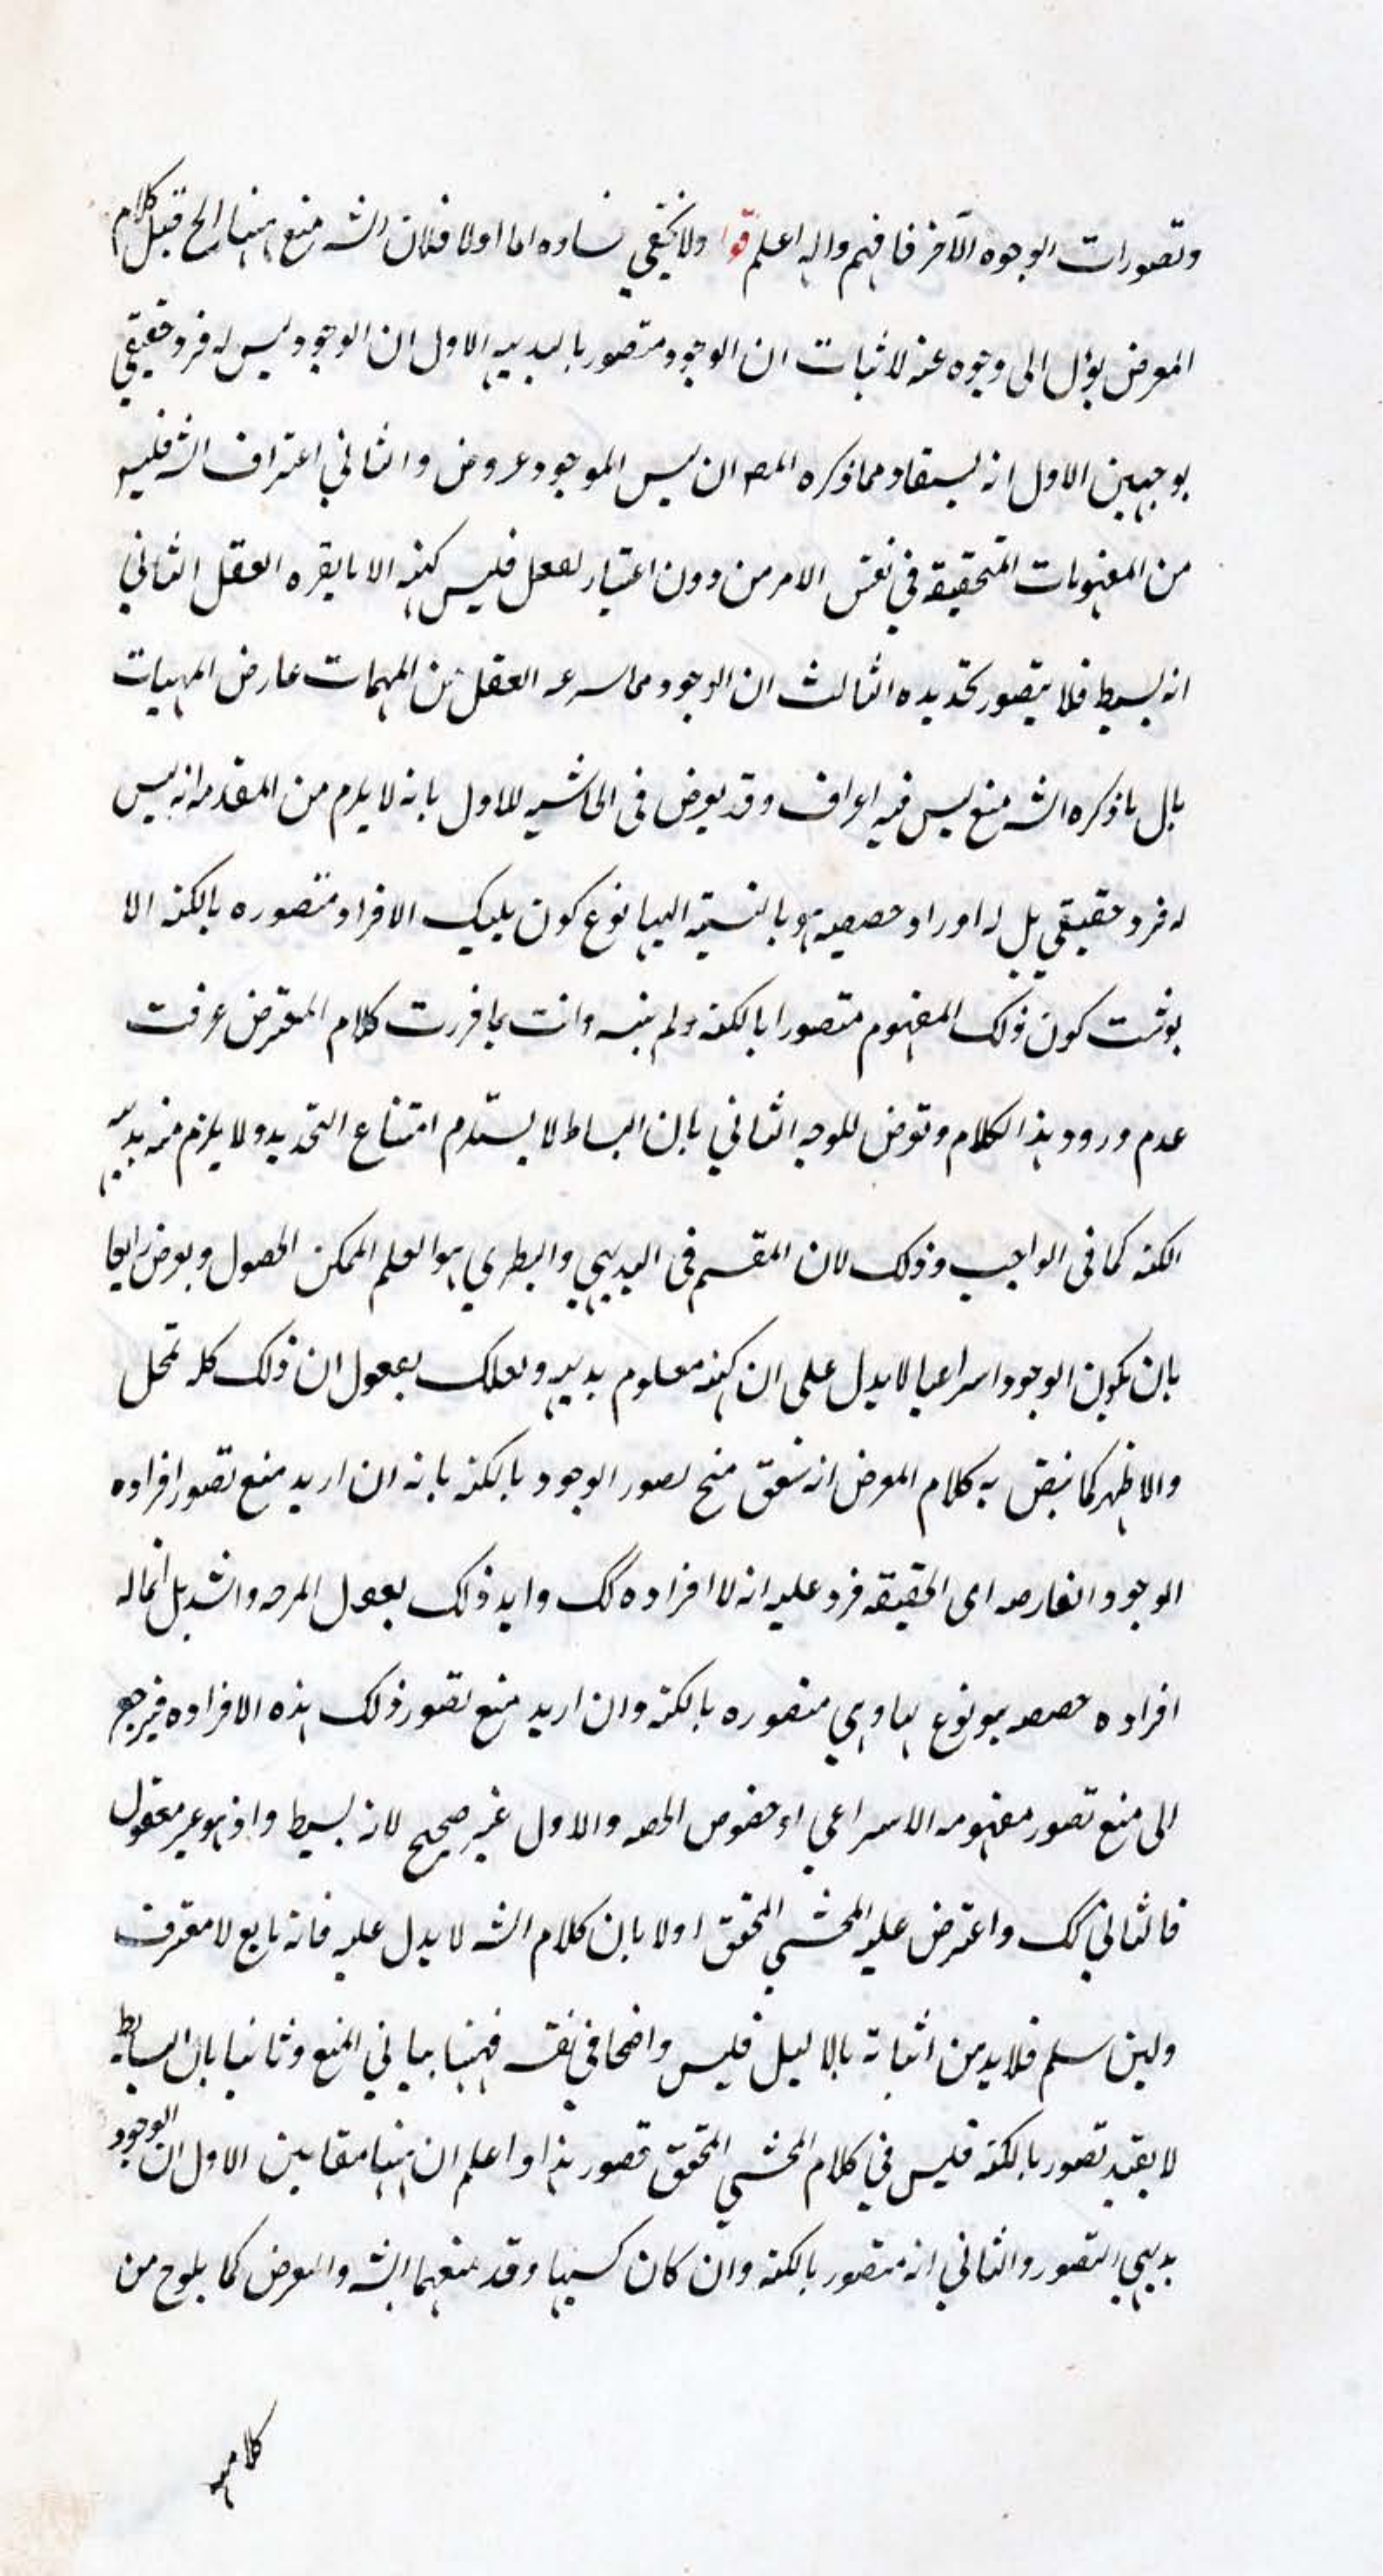 وتصورات الوجوه الآخر فافهم واله اعلم قو ولا يخفي فساده اما اولا فلان الشه منع ههنا الخ قبل كلام
المعرض يؤل الى وجوه عنه لاثبات ان الوجود متصور بالبديهه الاول ان الوجود ليس له فرد حقيقي
بوجهين الاول انه يستفاد مما ذكره المصه ان ليس الموجود عروض والثاني اعتراف الشه فليس
من المفهومات المتحقيقه في نفس الامر من دون اعتبار لعقل فليس كنهه الا ما يقره العقل الثاني
انه بسيط فلا يتصور تحديده الثالث ان الوجود مما اسرعه العقل من المهمات عارض المهيات
بال ماذكره الشه منع ليس فيه اعراف وقد يعرض في الحاشيه للاول بانه لا يلرم من المقدمه انه ليس
له فرد حقيقي بل له افراد حصصيه هو بالنسبة اليها نوع كون بليك الافراد متصوره بالكنه الا
بوثبت كون ذلك المفهوم متصورا بالكنه ولم يثبته وانت بما قررت كلام المعترض عرفت
عدم ورود هذا الكلام وتوض للوجه الثاني بان البساط لا يستلرم امتناع التحديد ولا يلزم منه بديهه
الكنه كما في الواجب وذلك لان المقسم في البديهي والنطري هو العلم الممكن الحصول وبعرض رابعا
بان يكون الوجود اسراعيا لا يدل على ان كنهه معلوم بديهه ولعلك بععول ان ذلك كله تمحل
والاظهر كما ينقض به كلام المعرض انه سعق منح لصور الوجود بالكنه بانه ان اريد منع تصور افراده
الوجود العارصه اى الحقيقه فرد عليه انه لا افراد ه كك وايد ذلك بععول المرصه والشه بل انما له
افراد ه حصصه هو نوع لها وهي متصوره بالكنه وان اريد منع تصور ذلك هذه الافراده فيرجع
الى منع تصور مفهومه الاسراعي او خصوص الحصه والاول غير صحيح لانه بسيط واذ هو غير معقول
فالثاني كك واعترض عليه المحشي المحقق اولا بان كلام الشه لا يدل عليه فانه مانع لا معترف
ولين سلم فلا بد من اثباته بالا ليل فليس واضحا في نفسه فههنا بياني المنع وثانيا بان البسايط
لا يفيد تصور بالكنه فليس في كلام المحشي المحقق قصور هذا واعلم ان ههنا مقامين الاول ان الوجود
بديهي التصور والثاني انه متصور بالكنه وان كان كسبيا وقد منعهما الشه والمعرض كما يلوح من
كلامهه